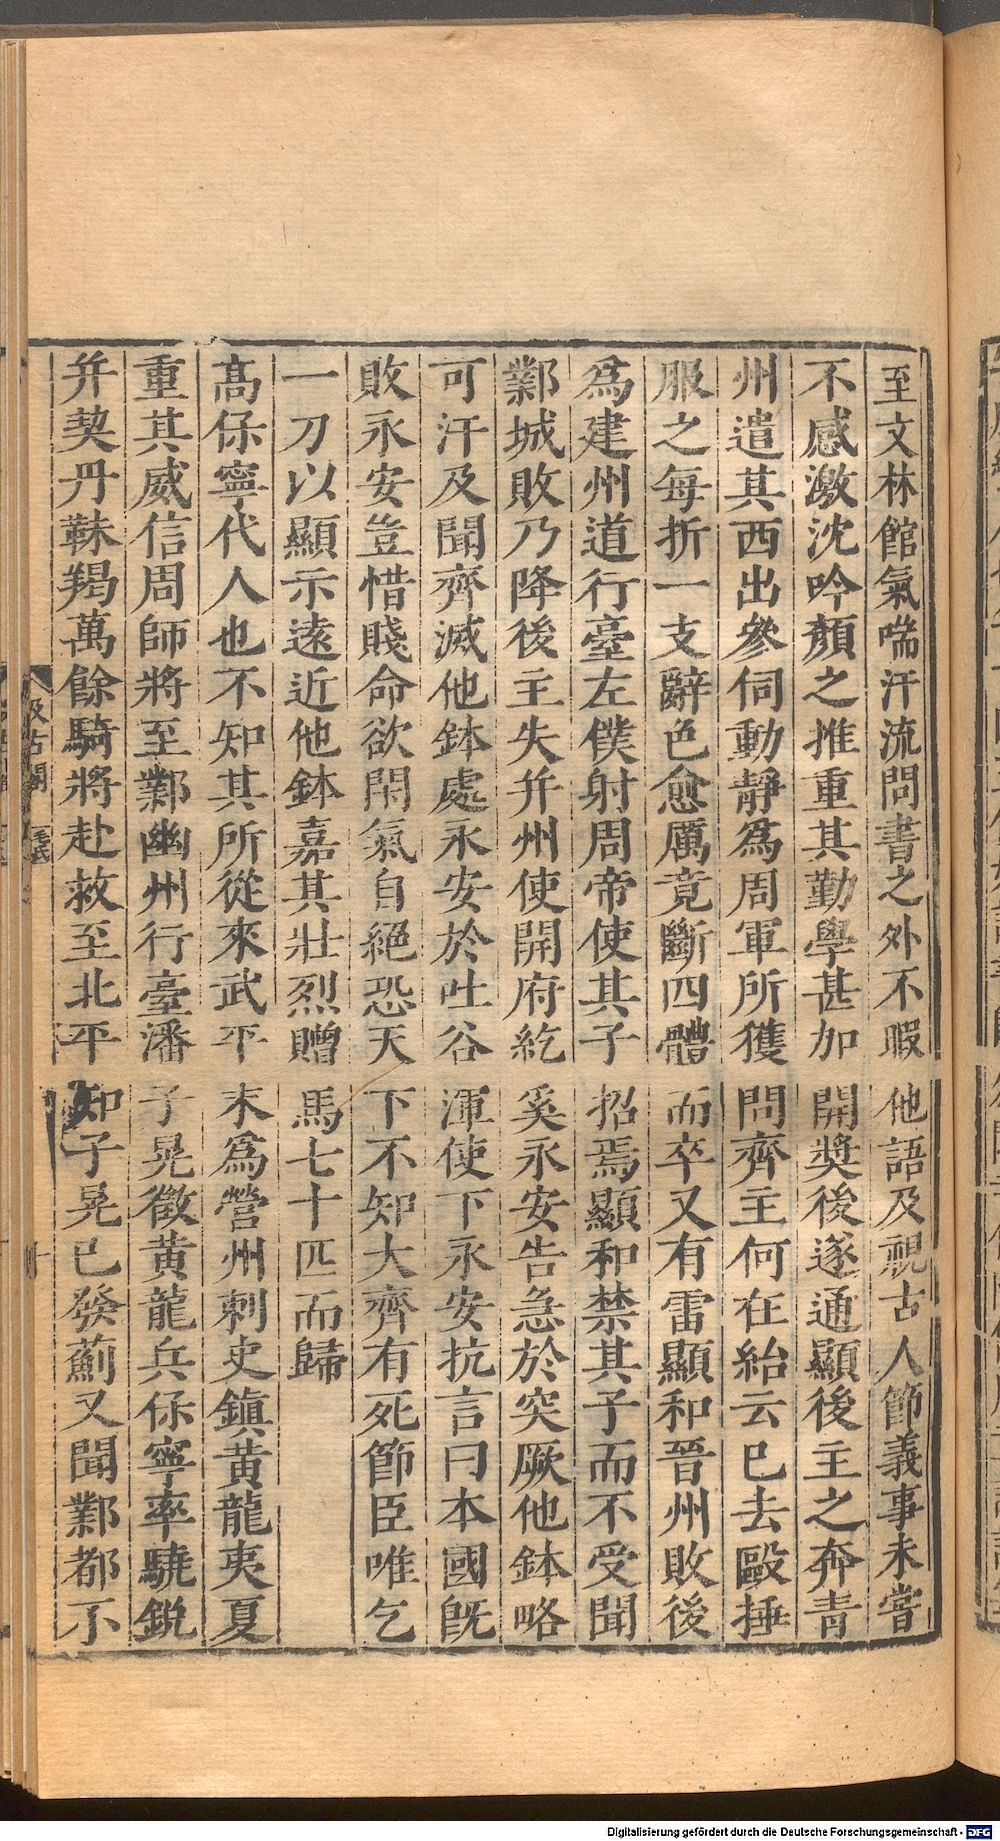 至文林館氣喘汗流問書之外不暇他語及視古人節義事未嘗
不感激沈吟顏之推重其勤學甚加開獎後遂通顯後主之奔青
州遣其西出參伺動靜爲周軍所獲問齊主何在紿云已去毆捶
服之每折一支辭色愈厲竟斷四體而卒又有雷顯和晉州敗後
爲建州道行臺左僕射周帝使其子招焉顯和禁其子而不受聞
鄴城敗乃降後主失并州使開府紇奚永安告急於突厥他鉢略
可汗及聞齊滅他鉢處永安於吐谷渾使下永安抗言曰本國旣
敗永安豈惜賤命欲閉氣自絕恐天下不知大齊有死節臣唯乞
一刀以顯示遠近他鉢嘉其壯烈贈馬七十匹而歸
高保寧代人也不知其所從來武平末爲營州刺史鎮黃龍夷夏
重其威信周師將至鄴幽州行臺潘子晃徵黃龍兵保寧率驍銳
并契丹靺羯萬餘騎將赴救至北平知子晃已發薊又聞鄴都不
汲古閣
毛氏
Digitalisierung gefördert durch die Deutsche Forschungsgemeinschaft - DFG